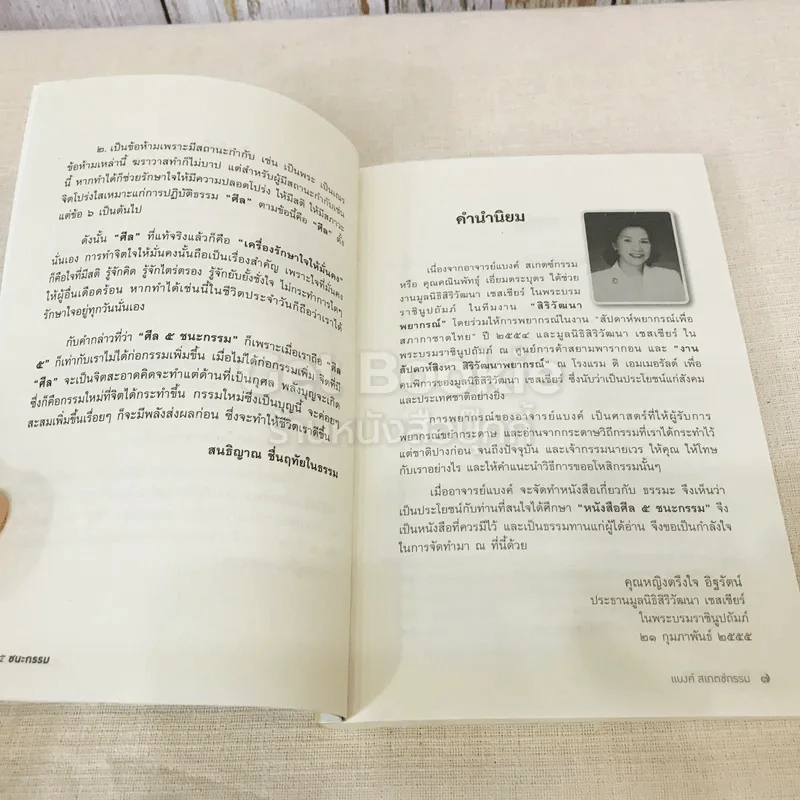 ๒. เป็นข้อห้ามเพราะมีสถานะกำกับ เช่น เป็นพระ เป็นเณร
ข้อห้ามเหล่านี้ ฆราวาสทำก็ไม่บาป แต่สำหรับผู้มีสถานะกำกับเช่น
นี้ หากทำได้ก็ช่วยรักษาใจให้มีความปลอดโปร่ง ให้มีสติ ให้มีสภาวะ
จิตโปร่งใสเหมาะแก่การปฏิบัติธรรม "ศีล" ตามข้อนี้คือ "ศีล" ตั้ง
แต่ข้อ ๖ เป็นต้นไป
ดังนั้น "ศีล" ที่แท้จริงแล้วก็คือ "เครื่องรักษาใจให้มั่นคง"
นั่นเอง การทำจิตใจให้มั่นคงนั้นถือเป็นเรื่องสำคัญ เพราะใจที่มั่นคง
ก็คือใจที่มีสติ รู้จักคิด รู้จักไตร่ตรอง รู้จักยับยั้งชั่งใจ ไม่กระทำการใดๆ
ให้ผู้อื่นเดือดร้อน หากทำได้เช่นนี้ในชีวิตประจำวันก็ถือว่าเราได้
รักษาใจอยู่ทุกวันนั่นเอง
กับคำกล่าวที่ว่า "ศีล ๕ ชนะกรรม" ก็เพราะเมื่อเราถือ "ศีล
๕" ก็เท่ากับเราไม่ได้ก่อกรรมเพิ่มขึ้น เมื่อไม่ได้ก่อกรรมเพิ่ม จิตที่มี
"ศีล" จะเป็นจิตสะอาดคิดจะทำแต่ด้านที่เป็นกุศล พลังบุญจะเกิด
ซึ่งก็คือกรรมใหม่ที่จิตได้กระทำขึ้น กรรมใหม่ซึ่งเป็นบุญนี้ จะค่อยๆ
สะสมเพิ่มขึ้นเรื่อยๆ ก็จะมีพลังส่งผลก่อน ซึ่งจะทำให้ชีวิตเราดีขึ้น
สนธิญาณ ชื่นฤทัยในธรรม
๕ ชนะกรรม
คำนำนิยม
เนื่องจากอาจารย์แบงค์ สเกตช์กรรม
หรือ คุณคณินพัทธุ์ เอี่ยมตระบุตร ได้ช่วย
งานมูลนิธิสิริวัฒนา เชสเชียร์ ในพระบรม
ราชินูปถัมภ์ ในทีมงาน "สิริวัฒนา
พยากรณ์" โดยร่วมให้การพยากรณ์ในงาน "สัปดาห์พยากรณ์เพื่อ
สภากาชาดไทย" ปี ๒๕๕๔ และมูลนิธิสิริวัฒนา เชสเชียร์ ใน
พระบรมราชินูปถัมภ์ ณ ศูนย์การค้าสยามพารากอน และ "งาน
สัปดาห์สิงหา สิริวัฒนาพยากรณ์" ณ โรงแรม ดิ เอมเมอรัลด์ เพื่อ
คนพิการของมูลนิธิสิริวัฒนา เชสเชียร์ ซึ่งนับว่าเป็นประโยชน์แก่สังคม
และประเทศชาติอย่างยิ่ง
การพยากรณ์ของอาจารย์แบงค์ เป็นศาสตร์ที่ผู้รับการ
พยากรณ์ขยำกระดาษ และอ่านจากกระดาษวิถีกรรมที่เราได้กระทำไว้
แต่ชาติปางก่อน จนถึงปัจจุบัน และเจ้ากรรมนายเวร ให้คุณ ให้โทษ
กับเราอย่างไร และให้คำแนะนำวิธีการขออโหสิกรรมนั้นๆ
เมื่ออาจารย์แบงค์ จะจัดทำหนังสือเกี่ยวกับ ธรรมะ จึงเห็นว่า
เป็นประโยชน์กับท่านที่สนใจได้ศึกษา "หนังสือศีล ๕ ชนะกรรม" จึง
เป็นหนังสือที่ควรมีไว้ และเป็นธรรมทานแก่ผู้ได้อ่าน จึงขอเป็นกำลังใจ
ในการจัดทำมา ณ ที่นี้ด้วย
คุณหญิงตรึงใจ อิฐรัตน์
ประธานมูลนิธิสิริวัฒนา เชสเชียร์
ในพระบรมราชินูปถัมภ์
๒๑ กุมภาพันธ์ ๒๕๕๕
แบงค์ สเกตช์กรรม ๗